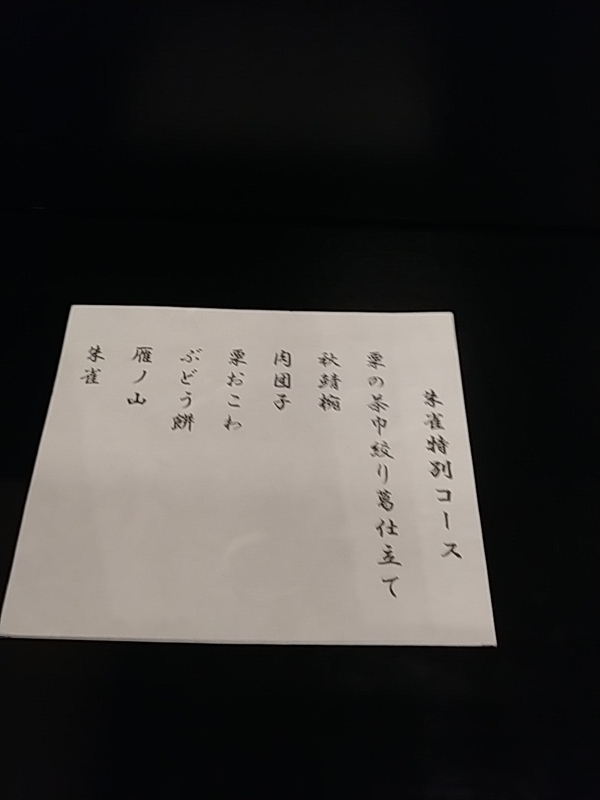 朱雀特別コース
栗の茶巾絞り葛仕立て
秋鯖椀
肉団子
栗おこわ
ぶどう餅
雁ノ山
朱雀